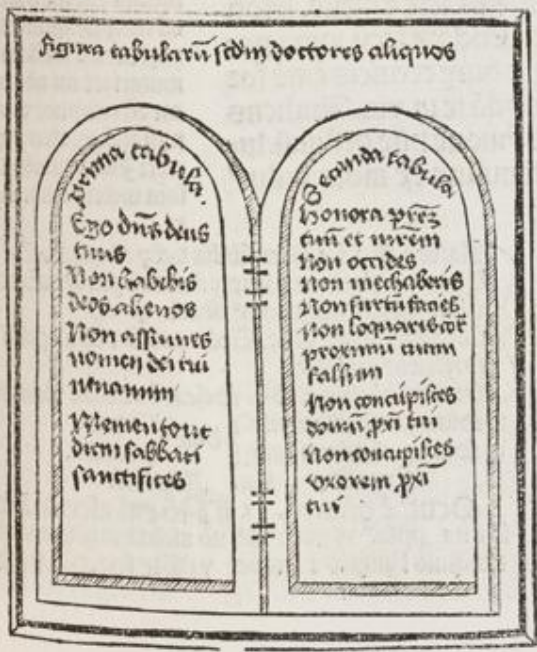 Figura tabularũ scd̃m doctores aliquos
Prima tabula.
Ego dñs deus
tuus
Non habebis
deos alienos
Non assumes
nomen dei tui
in vanum
Memento ut
diem sabbati
sanctifices
Secunda tabula
Honora prẽz
tuũ et mr̃em
Non occides
Non mechaberis
Non furtũ facies
Non loquaris cõtr̃
proximũ tuum
falsum
Non concupisces
domũ p̱xi tui
Non concupisces
vxorem p̱xĩ
tui